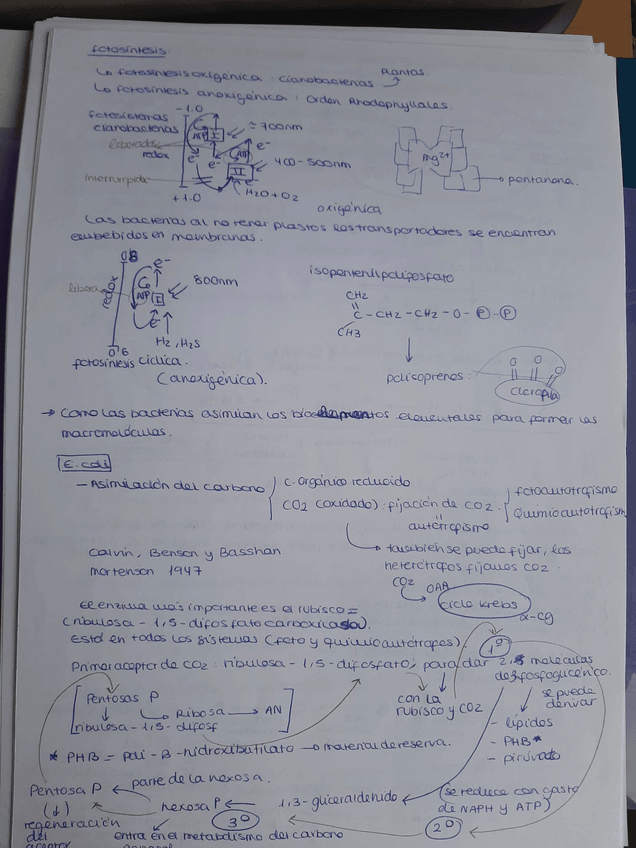 fotosíntesis
↳ fotosíntesis oxigénica : cianobacterias → Plantas.
↳ fotosíntesis anoxigénica : orden Rhodophyllales.
fotosistemas cianobacterias
-1.0
ATP
I
≈ 700nm
redox
e-
e-
e-
ATP
II
400-500nm
interrumpida
e-
H2O + O2
+1.0
oxigénica
Mg2+
pentanona.
Las bacterias al no tener plastos los transportadores se encuentran
embebidos en membranas.
e-
redox
libera
ATP
I
800nm
e-
H2, H2S
0'6
fotosíntesis cíclica.
(anoxigénica).
isopentenilpolifosfato
CH2
C - CH2 - CH2 - O - P - P
CH3
polisoprenos :
O O O
→ Como las bacterias asimilan los elementales para formar las
macromoléculas.
E. coli
- Asimilación del carbono
C. orgánico reducido
CO2 (oxidado) : fijación de CO2.
fotoautotrofismo
Quimioautotrofism
autotrofismo
Calvin, Benson y Basshan
mortenson 1947
también se puede fijar, los
heterótrofos fijan el CO2 :
CO2
OAA
ciclo Krebs
α-cg
El enzima más importante es el rubisco =
(ribulosa - 1,5- difosfato carboxilasa).
Está en todos los sistemas (foto y quimioautótrofos).
1º
Primer aceptor de CO2 : ribulosa - 1,5-difosfato; para dar 2, moléculas
de 3-fosfoglicénico.
Pentosas P
Ribosa → AN
ribulosa - 1,5- difosf
con la
rubisco y CO2
se puede
derivar
- lípidos
- PHB*
- piruvato
* PHB = poli - B - hidroxibutilato → material de reserva.
parte de la hexosa.
Pentosa P
(↓)
regeneración
del
hexosa P
3º
1,3-gliceraldehído
(se reduce con gasto
de NAPH y ATP)
2º
entra en el metabolismo del carbono